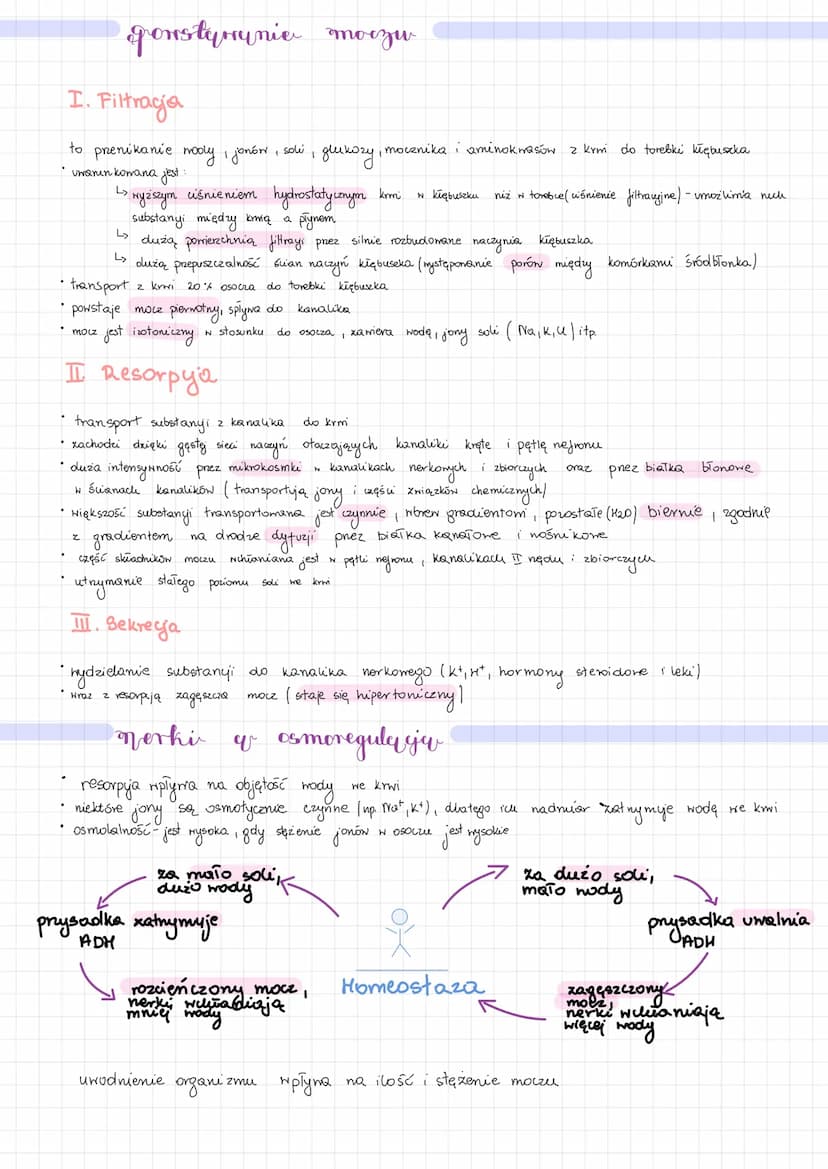 powstawanie moczu
I. Filtracja
to przenikanie wody, jonów, soli, glukozy, mocznika i aminokwasów z krwi do torebki kłębuszka
• uwarunkowana jest:
↳ wyższym ciśnieniem hydrostatycznym krwi w kłębuszku niż w torebce (ciśnienie filtracyjne) - umożliwia ruch
substancji między krwią a płynem
↳ dużą powierzchnią filtracji przez silnie rozbudowane naczynia kłębuszka
↳ dużą przepuszczalność ścian naczyń kłębuszka (występowanie porów między komórkami śródbłonka)
• transport z krwi 20% osocza do torebki kłębuszka
• powstaje mocz pierwotny, spływa do kanalika
• mocz jest izotoniczny w stosunku do osocza, zawiera wodę, jony soli (Na, K, Cl) itp.
II Resorpcja
• transport substancji z kanalika do krwi
• zachodzi dzięki gęstej sieci naczyń otaczających kanaliki kręte i pętlę nefronu
• duża intensywność przez mikrokosmki w kanalikach nerkowych i zbiorczych oraz przez białka błonowe
w ścianach kanalików (transportują jony i części związków chemicznych)
• większość substancji transportowana jest czynnie, wbrew gradientowi, pozostałe (H2O) biernie, zgodnie
z gradientem na drodze dyfuzji przez białka kanałowe i nośnikowe
• część składników moczu wchłaniana jest w pętli nefronu, kanalikach II rzędu i zbiorczych
• utrzymanie stałego poziomu soli we krwi
III. Sekrecja
• wydzielanie substancji do kanalika nerkowego (K+, H+, hormony steroidowe i leki)
• wraz z resorpcją zagęszcza mocz (staje się hipertoniczny)
nerki w osmoregulacji
• resorpcja wpływa na objętość wody we krwi
• niektóre jony są osmotycznie czynne (np. Na+, K+), dlatego ich nadmiar zatrzymuje wodę we krwi
• osmolalność - jest wysoka, gdy stężenie jonów w osoczu jest wysokie
za mało soli,
dużo wody
przysadka zatrzymuje
ADH
rozcieńczony mocz,
nerki wchłaniają
mniej wody
Homeostaza
za dużo soli,
mało wody
przysadka uwalnia
ADH
zagęszczony
mocz,
nerki wchłaniają
więcej wody
uwodnienie organizmu wpływa na ilość i stężenie moczu